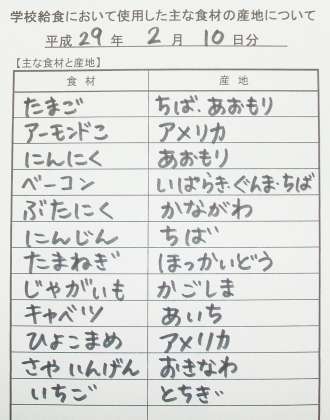 学校給食において使用した主な食材の産地について
平成 29 年 2 月 10 日分
【主な食材と産地】
食材 産地
たまご ちば、あおもり
アーモンドこ アメリカ
にんにく あおもり
ベーコン いばらき・ぐんま・ちば
ぶたにく かながわ
にんじん ちば
たまねぎ ほっかいどう
じゃがいも かごしま
キャベツ あいち
ひよこまめ アメリカ
さやいんげん おきなわ
いちご とちぎ